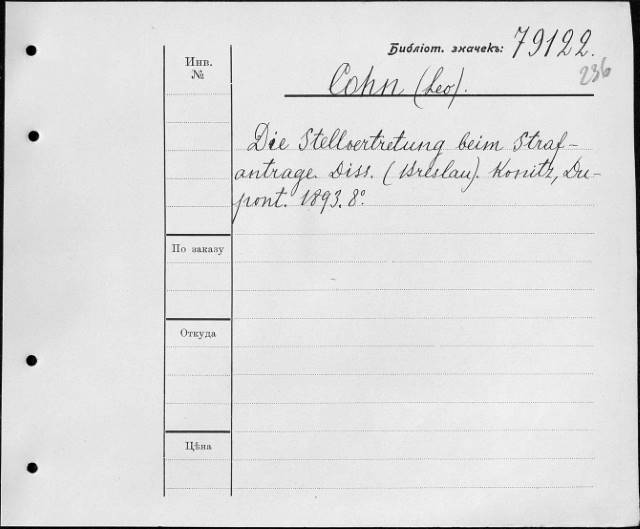 Библіот. значекъ: 79122.
236
Инв.
№
Cohn (Leo).
Die Stellvertretung beim Straf-
antrage. Diss. (Breslau). Konitz, Du-
pont. 1893. 8°.
По заказу
Откуда
Цѣна